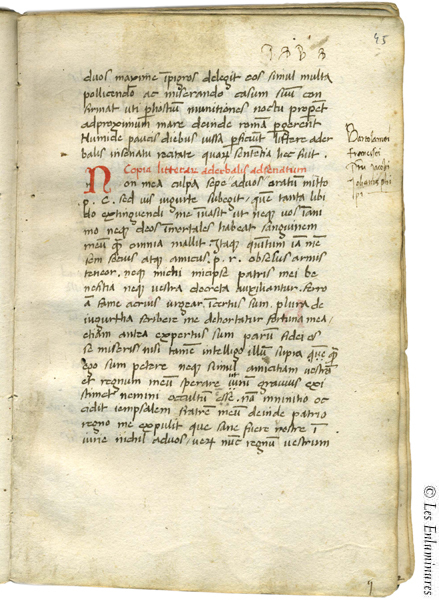 45
duos maxime ĩpigros delegit eos simul multa
pollicendo ac miserando casum suũ con
firmat uti p hostiũ munitiones noctu propẽt
ad proximum mare deinde romã pgerent
Numide paucis diebus iussa pficiũt littere ader
balis in senatu recitate quarũ sententia hec fuit.
Copia litterarũ aderbalis ad senatum
Non mea culpa sepe ad uos oratũ mitto
p. c. sed uis iugurte subegit, que tanta libi
do extinguendi me inuasit ut neq uos iam
mo neq deos imortales habeat sanguinem
meũ q omnia mallit Itaq quintum iã mẽ
sem socius atq amicus. p. r. obsessus armis
teneor. neq michi micipse patris mei be
nefitia neq uestra decreta auxiliantur. ferro
a fame acrius urgear Icertus sum. plura de
iugurtha scribere me dehortatur fortuna mea/
etiam antea expertus sum parũ fidei es
se miseris nisi tamẽ intelligo illũ supra quẽ q̃
ego sum petere neq simul amicitiam uestrã
et regnum meũ sperare utrũ grauius exi
stimet nemini occultũ esse. nã in initio oc
cidit iempsalem fratrẽ meũ deinde patrio
regno me expulit que sane fuere nostre ĩ
iurie nichil ad uos, uerũ nũc regnũ uestrum
Bartolameo
Francisci
© Les Enluminures